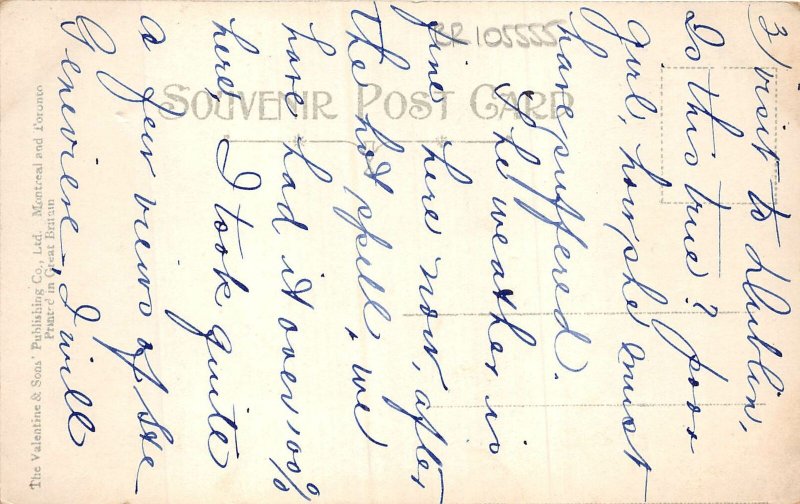 3) visit to Dublin,
Is this true? poor
girl, how she must
have suffered.
The weather is
fine here now, after
the hot spell, we
have had it over 100°
here, I took quite
a few views of Ste
Genivieve, I will
SOUVENIR POST CARD
RR105555
The Valentine & Sons' Publishing Co., Ltd. Montreal and Toronto
Printed in Great Britain